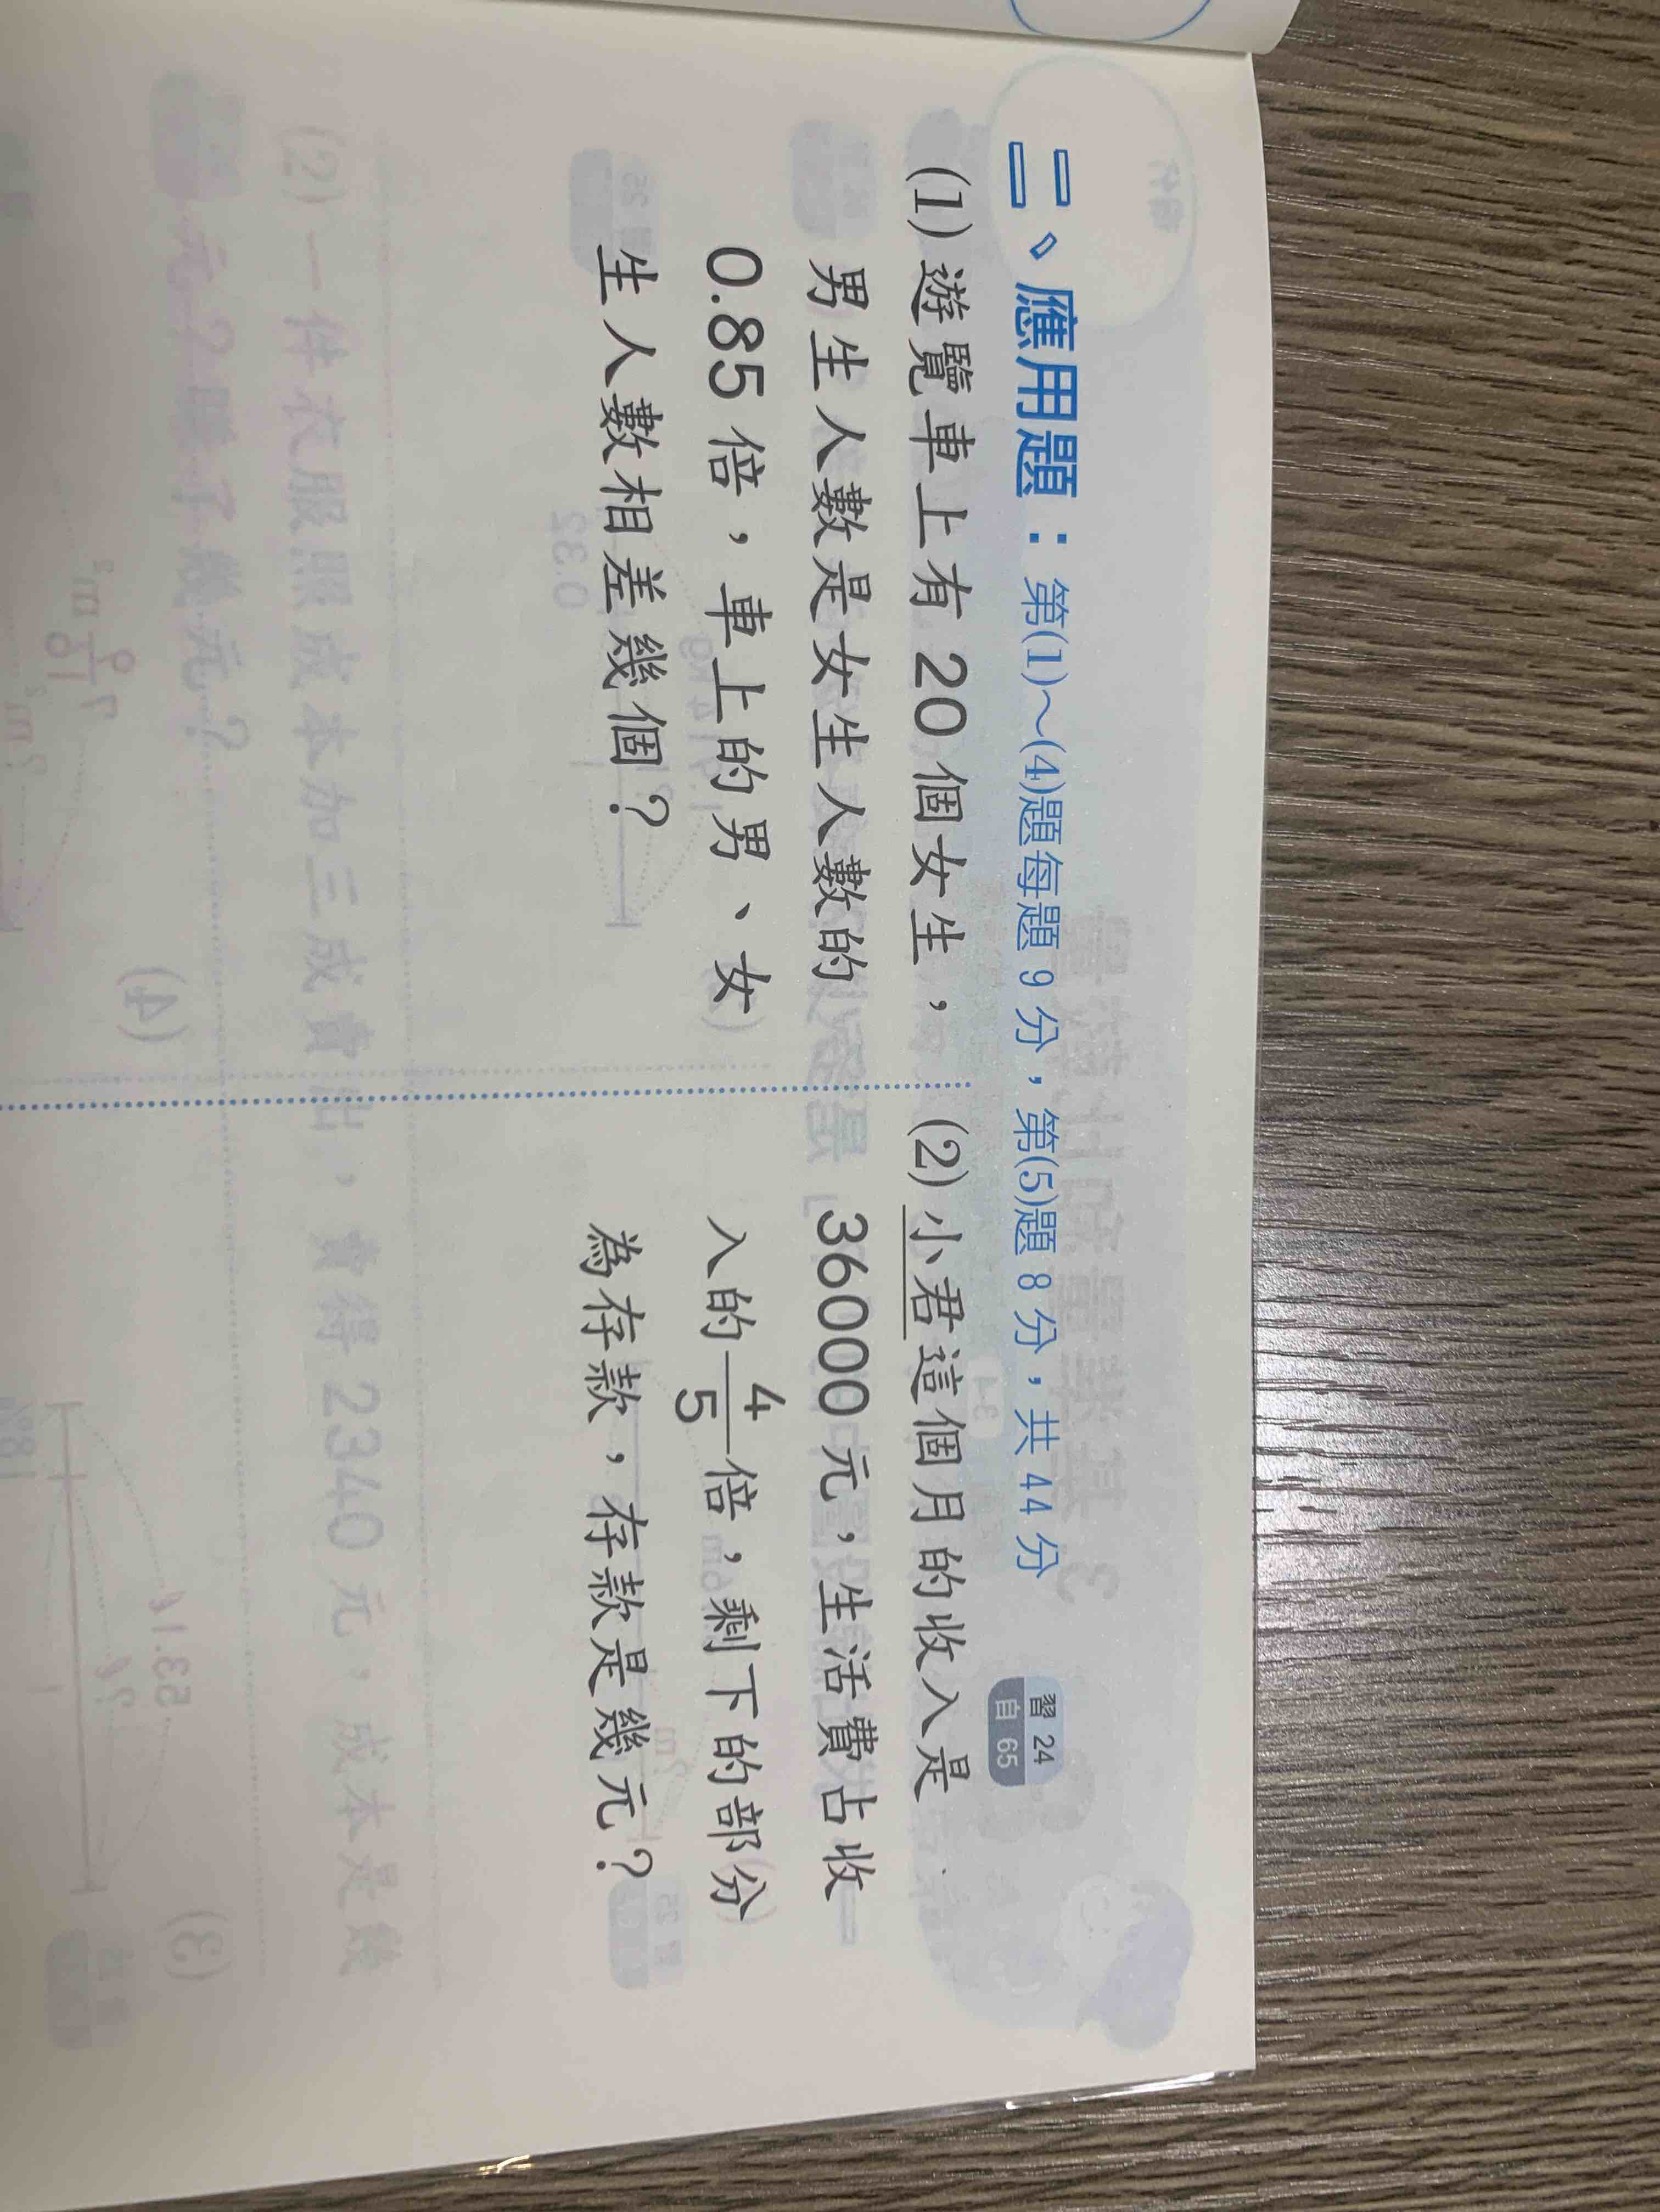 二、應用題：第(1)～(4)題每題 9 分，第(5)題 8 分，共 44 分
習 24
自 65
(1)遊覽車上有 20 個女生，
男生人數是女生人數的
0.85 倍，車上的男、女
生人數相差幾個？
(2)小君這個月的收入是
36000 元，生活費占收
入的 4/5 倍，剩下的部分
為存款，存款是幾元？
(2)一件衣服照成本加三成賣出，賣得 2340 元，成本是幾